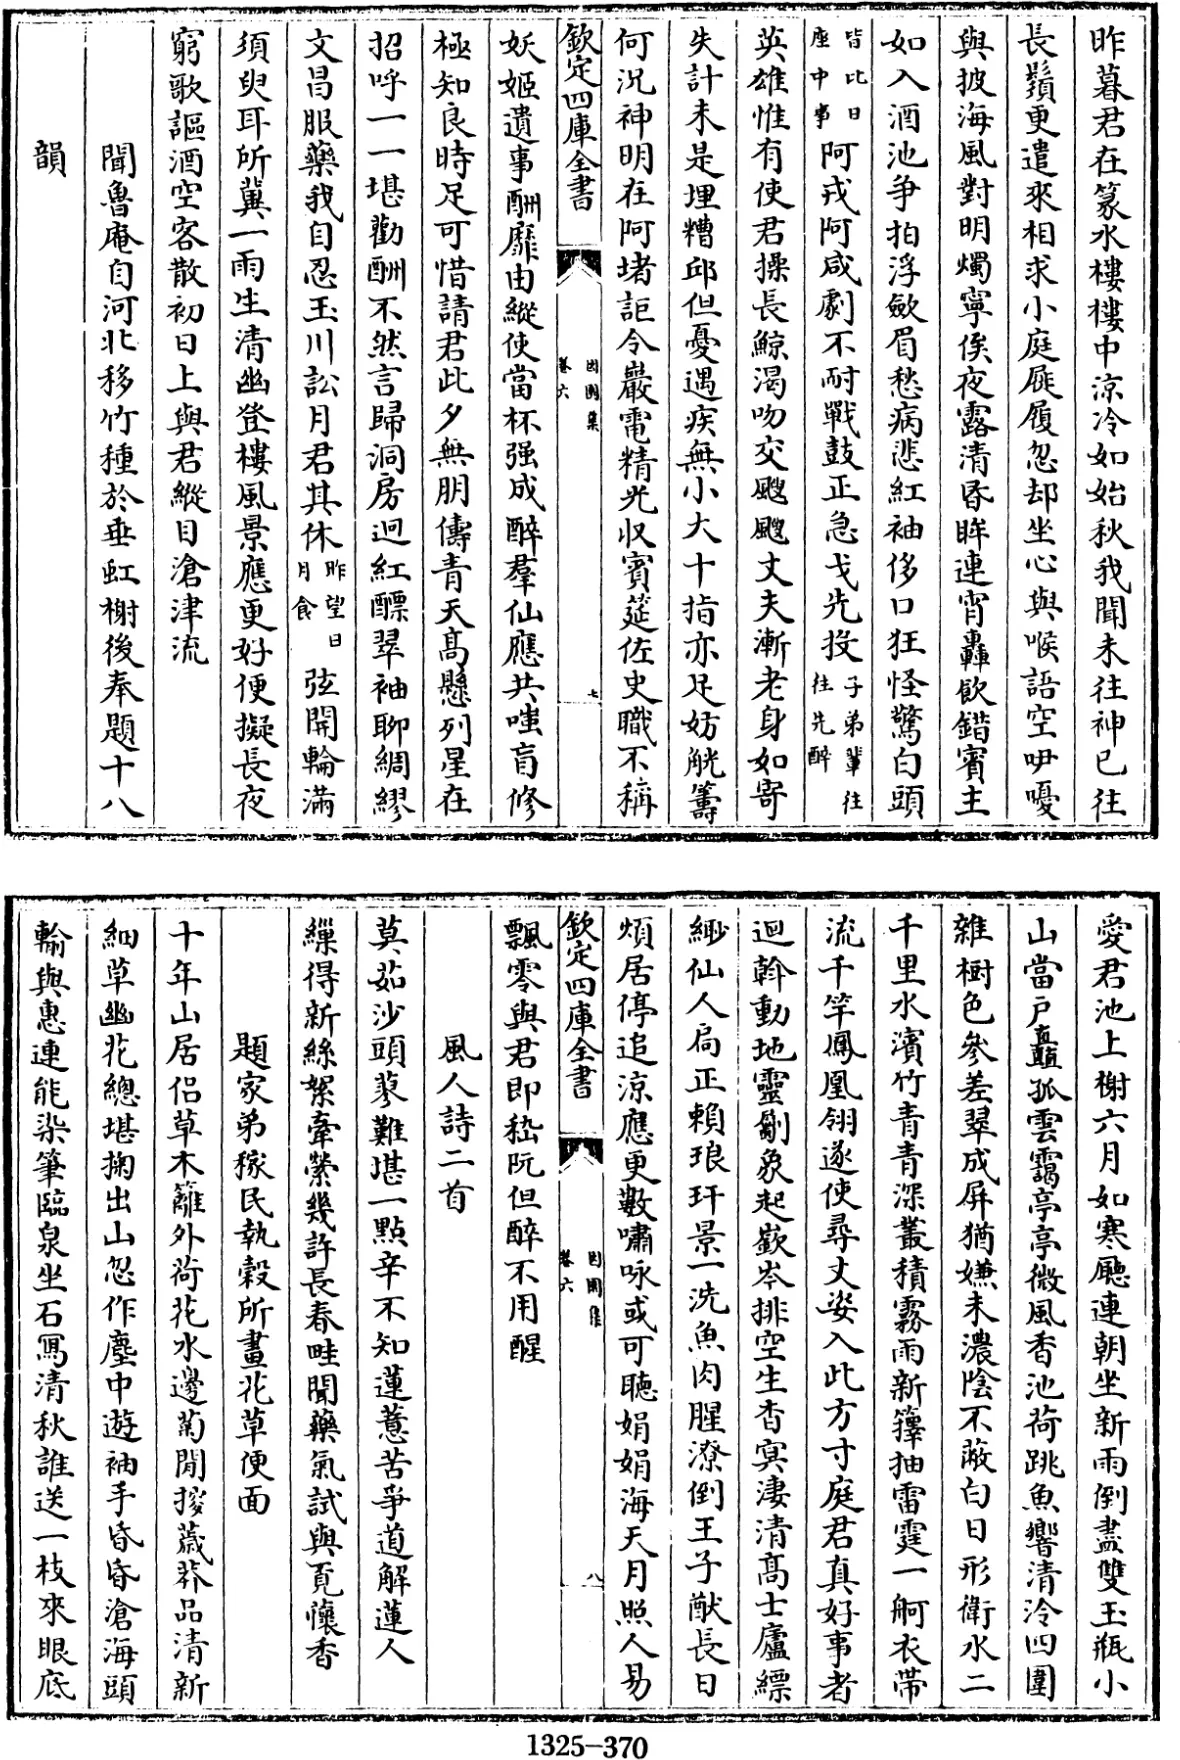 昨暮君在篆水樓樓中涼冷如始秋我聞未往神已往
長鬚更遣來相求小庭屣履忽却坐心與喉語空咿嚘
與披海風對明燭寧俟夜露清昏眸連宵轟飲錯賓主
如入酒池争拍浮斂眉愁病悲紅袖侈口狂怪驚白頭
皆比日座中事阿戎阿咸劇不耐戰鼓正急戈先投子弟輩往往先醉
英雄惟有使君操長鯨渇吻交颼飀丈夫漸老身如寄
失計未是埋糟邱但憂遇疾無小大十指亦足妨觥籌
何況神明在阿堵詎令巖電精光収賓筵佐史職不稱
欽定四庫全書
因園集
卷六
七
妖姬遺事酬靡由縱使當杯强成醉羣仙應共嗤肓修
極知良時足可惜請君此夕無朋儔青天高懸列星在
招呼一一堪勸酬不然言歸洞房迥紅醥翠袖聊綢繆
文昌服藥我自忍玉川訟月君其休昨望日月食弦開輪滿
須臾耳所冀一雨生清幽登樓風景應更好便擬長夜
窮歌謳酒空客散初日上與君縱目滄津流
聞魯庵自河北移竹種於垂虹榭後奉題十八
韻
愛君池上榭六月如寒廳連朝坐新雨倒盡雙玉瓶小
山當戶矗孤雲靄亭亭微風香池荷跳魚響清泠四圍
雜樹色參差翠成屏猶嫌未濃陰不蔽白日形衛水二
千里水濱竹青青深叢積霧雨新籜抽雷霆一舸衣帶
流千竿鳳凰翎遂使尋丈姿入此方寸庭君真好事者
迴斡動地靈劚㒸起嶔岑排空生杳冥淒清高士廬縹
緲仙人扃正賴琅玕景一洗魚肉腥潦倒王子猷長日
煩居停追涼應更數嘯咏或可聴娟娟海天月照人易
欽定四庫全書
因園集
卷六
八
飄零與君即嵇阮但醉不用醒
風人詩二首
莫茹沙頭蓼難堪一點辛不知蓮薏苦爭道解蓮人
繅得新絲絮牽縈幾許長春畦聞藥氣試與覓懷香
題家弟稼民執穀所畫花草便面
十年山居侣草木籬外荷花水邊菊閒撥葳蕤品清新
細草幽花總堪掬出山忽作塵中遊袖手昏昏滄海頭
輸與惠連能染筆臨泉坐石寫清秋誰送一枝來眼底
1325-370